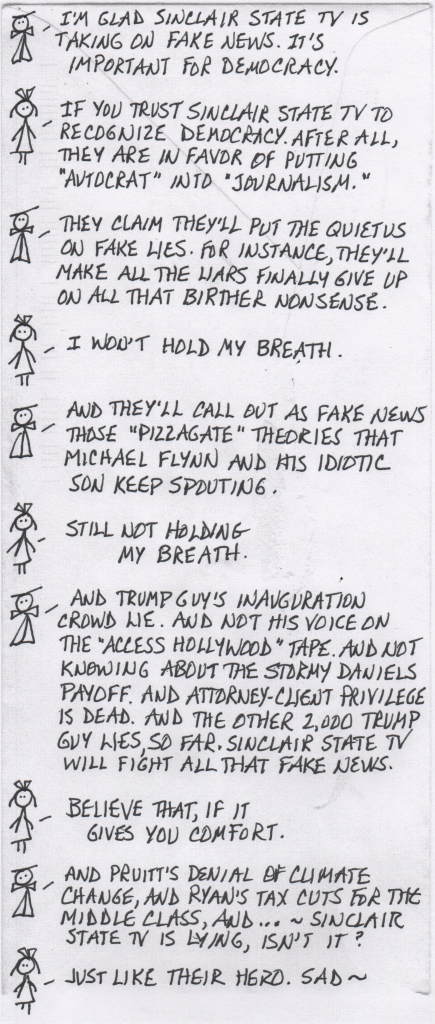 I'M GLAD SINCLAIR STATE TV IS
TAKING ON FAKE NEWS. IT'S
IMPORTANT FOR DEMOCRACY.
IF YOU TRUST SINCLAIR STATE TV TO
RECOGNIZE DEMOCRACY. AFTER ALL,
THEY ARE IN FAVOR OF PUTTING
"AUTOCRAT" INTO "JOURNALISM."
THEY CLAIM THEY'LL PUT THE QUIETUS
ON FAKE LIES. FOR INSTANCE, THEY'LL
MAKE ALL THE LIARS FINALLY GIVE UP
ON ALL THAT BIRTHER NONSENSE.
I WON'T HOLD MY BREATH.
AND THEY'LL CALL OUT AS FAKE NEWS
THOSE "PIZZAGATE" THEORIES THAT
MICHAEL FLYNN AND HIS IDIOTIC
SON KEEP SPOUTING.
STILL NOT HOLDING
MY BREATH.
AND TRUMP GUY'S INAUGURATION
CROWD LIE. AND NOT HIS VOICE ON
THE "ACCESS HOLLYWOOD" TAPE. AND NOT
KNOWING ABOUT THE STORMY DANIELS
PAYOFF. AND ATTORNEY-CLIENT PRIVILEGE
IS DEAD. AND THE OTHER 2,000 TRUMP
GUY LIES, SO FAR. SINCLAIR STATE TV
WILL FIGHT ALL THAT FAKE NEWS.
BELIEVE THAT, IF IT
GIVES YOU COMFORT.
AND PRUITT'S DENIAL OF CLIMATE
CHANGE, AND RYAN'S TAX CUTS FOR THE
MIDDLE CLASS, AND... ~ SINCLAIR
STATE TV IS LYING, ISN'T IT?
JUST LIKE THEIR HERO. SAD~